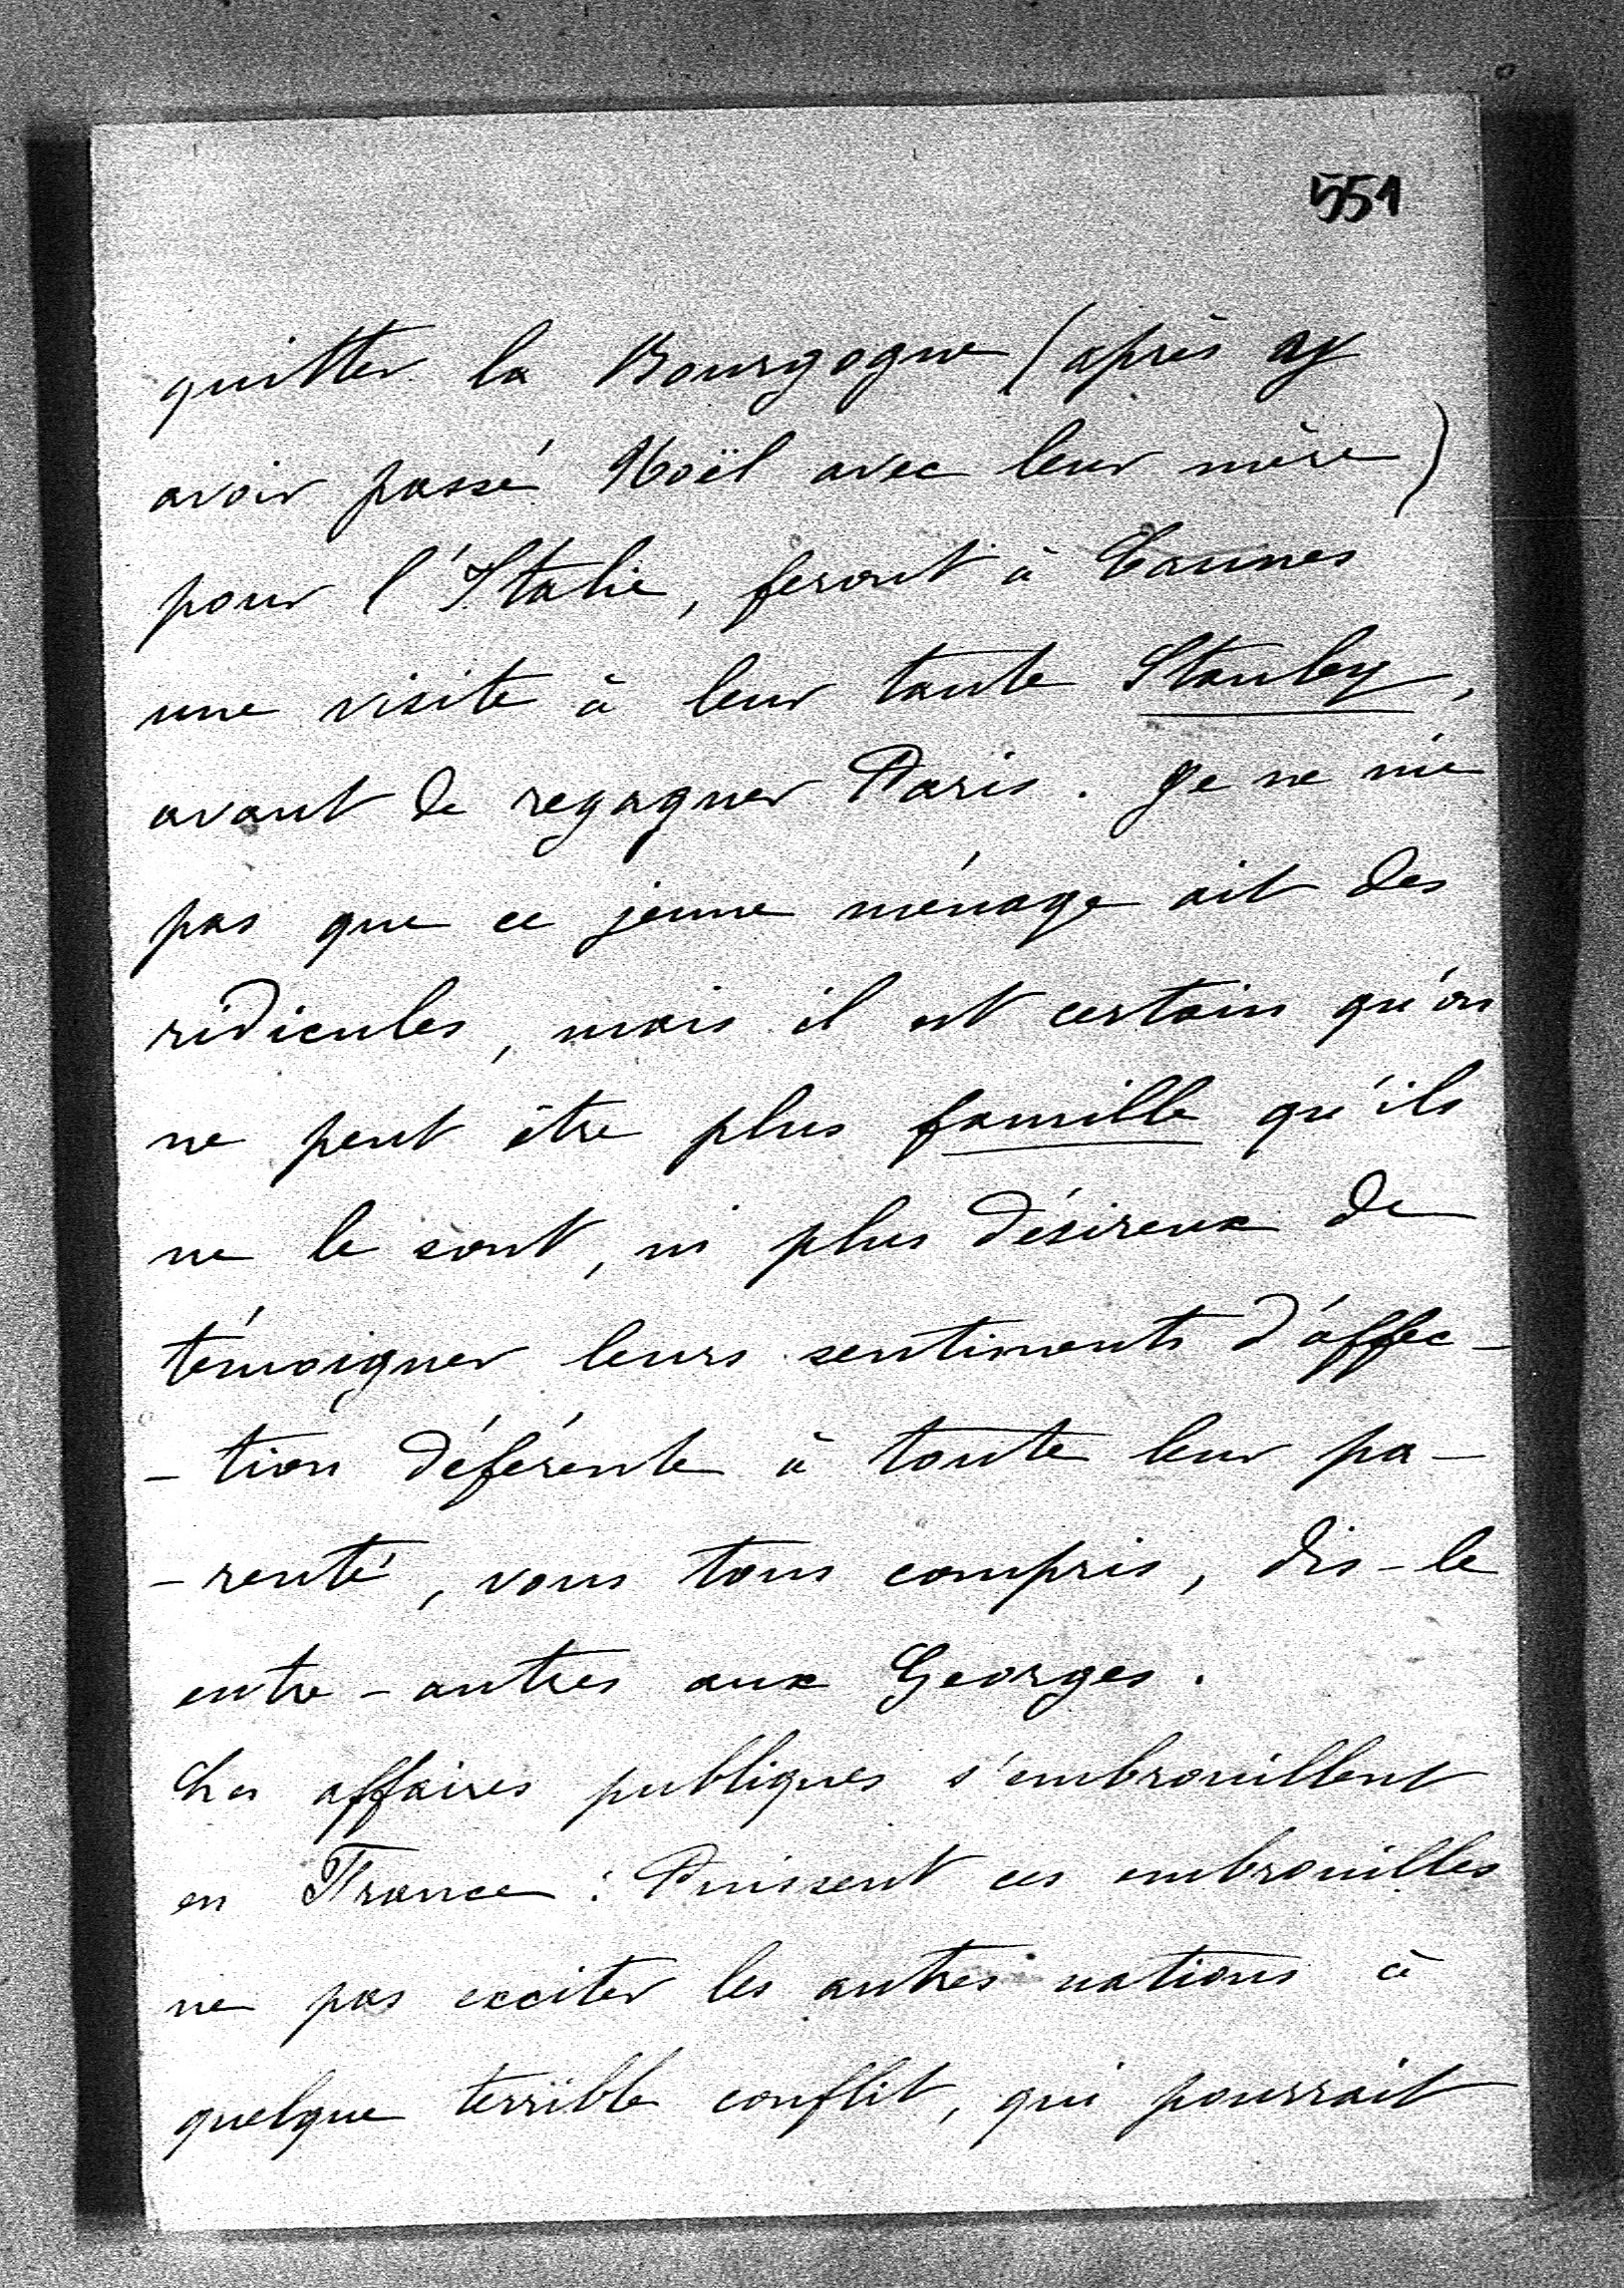 551
quitter la Bourgogne (après y
avoir passé Noël avec leur mère)
pour l'Italie, feront à Cannes
une visite à leur tante Stanley,
avant de regagner Paris. Je ne nie
pas que ce jeune ménage ait des
ridicules, mais il est certain qu'on
ne peut être plus famille qu'ils
ne le sont, ni plus désireux de
témoigner leurs sentiments d'affec-
-tion déférente à toute leur pa-
-renté, vous tous compris, dis-le
entre-autres aux Georges.
Les affaires publiques s'embrouillent
en France : Puissent ces embrouilles
ne pas exciter les autres nations à
quelque terrible conflit, qui pourrait